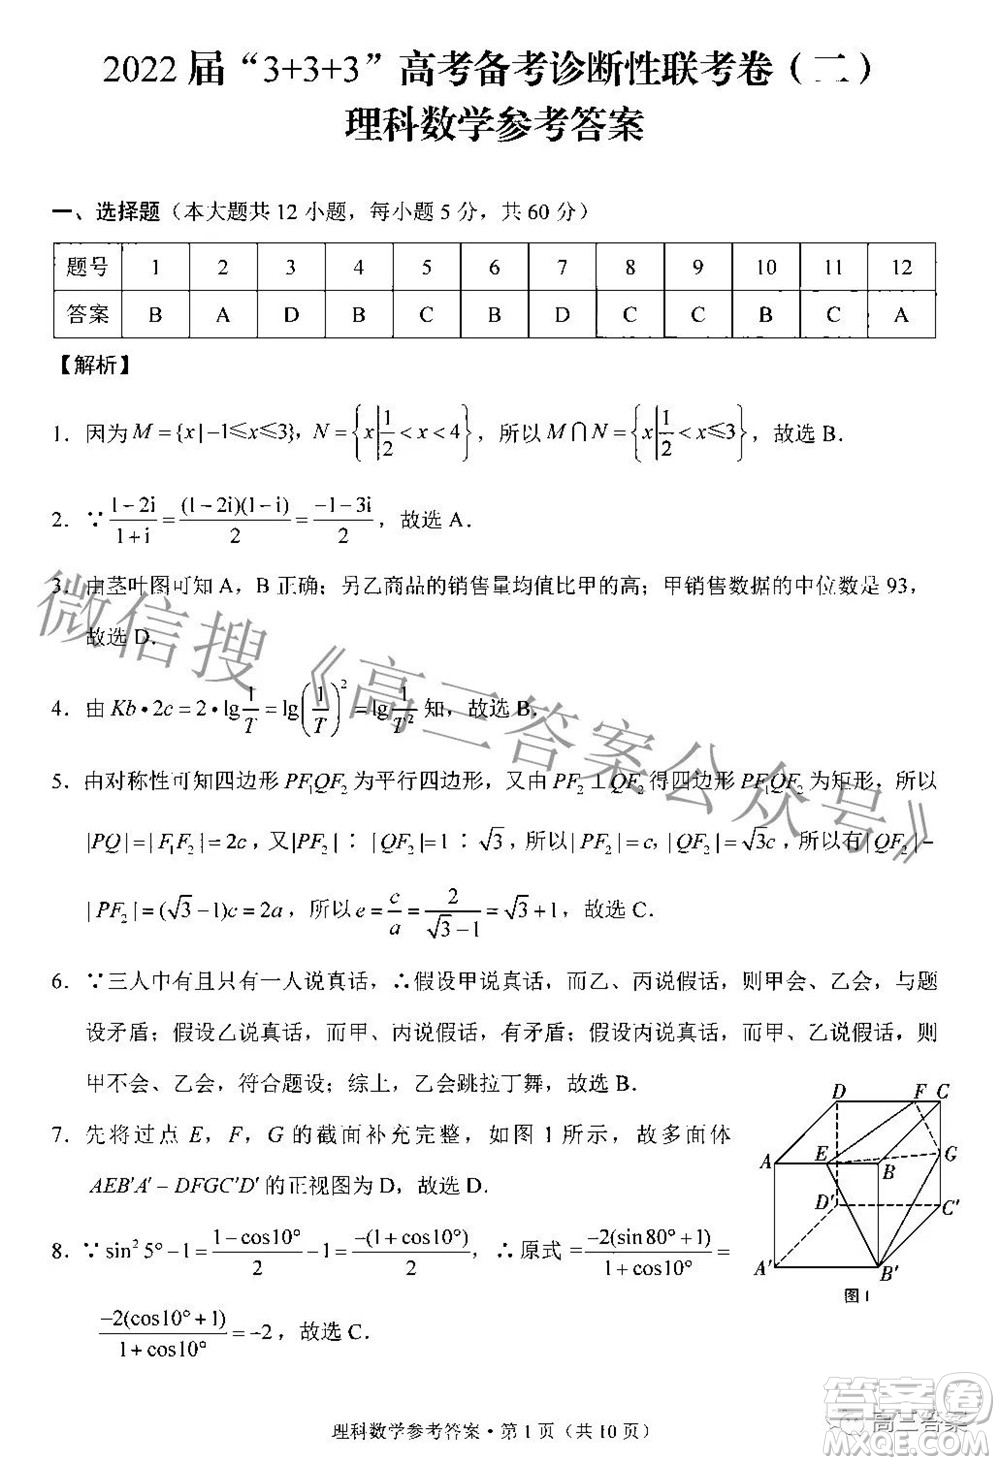 2022 届“3+3+3”高考备考诊断性联考卷（二）
理科数学参考答案
一、选择题（本大题共 12 小题，每小题 5 分，共 60 分）
题号 1 2 3 4 5 6 7 8 9 10 11 12
答案 B A D B C B D C C B C A
【解析】
1．因为 M={x|-1≤x≤3}，N={x|1/2<x<4}，所以 M∩N={x|1/2<x≤3}，故选 B．
2．∵ (1-2i)/(1+i)=(1-2i)(1-i)/2=(-1-3i)/2，故选 A．
3．由茎叶图可知 A，B 正确；另乙商品的销售量均值比甲的高；甲销售数据的中位数是 93，
故选 D．
4．由 Kb•2c=2•lg(1/T)=lg(1/T)²=lg(1/T²) 知，故选 B．
5．由对称性可知四边形 PF₁QF₂ 为平行四边形，又由 PF₂⊥QF₂ 得四边形 PF₁QF₂ 为矩形，所以
|PQ|=|F₁F₂|=2c，又|PF₂|：|QF₂|=1：√3，所以|PF₂|=c，|QF₂|=√3c，所以有|QF₂|-
|PF₂|=(√3-1)c=2a，所以 e=c/a=2/(√3-1)=√3+1，故选 C．
6．∵三人中有且只有一人说真话，∴假设甲说真话，而乙、丙说假话，则甲会、乙会，与题
设矛盾；假设乙说真话，而甲、丙说假话，有矛盾；假设丙说真话，而甲、乙说假话，则
甲不会、乙会，符合题设；综上，乙会跳拉丁舞，故选 B．
7．先将过点 E，F，G 的截面补充完整，如图 1 所示，故多面体
AEB′A′-DFGC′D′ 的正视图为 D，故选 D．
8．∵ sin²5°-1=(1-cos10°)/2-1=-(1+cos10°)/2，∴原式=-2(sin80°+1)/(1+cos10°)=
-2(cos10°+1)/(1+cos10°)=-2，故选 C．
D F C
A E B G
D′ C′
A′ B′
图 1
理科数学参考答案·第 1 页（共 10 页）
微信搜《高三答案公众号》
高三答案
答案卷
MXQE.COM